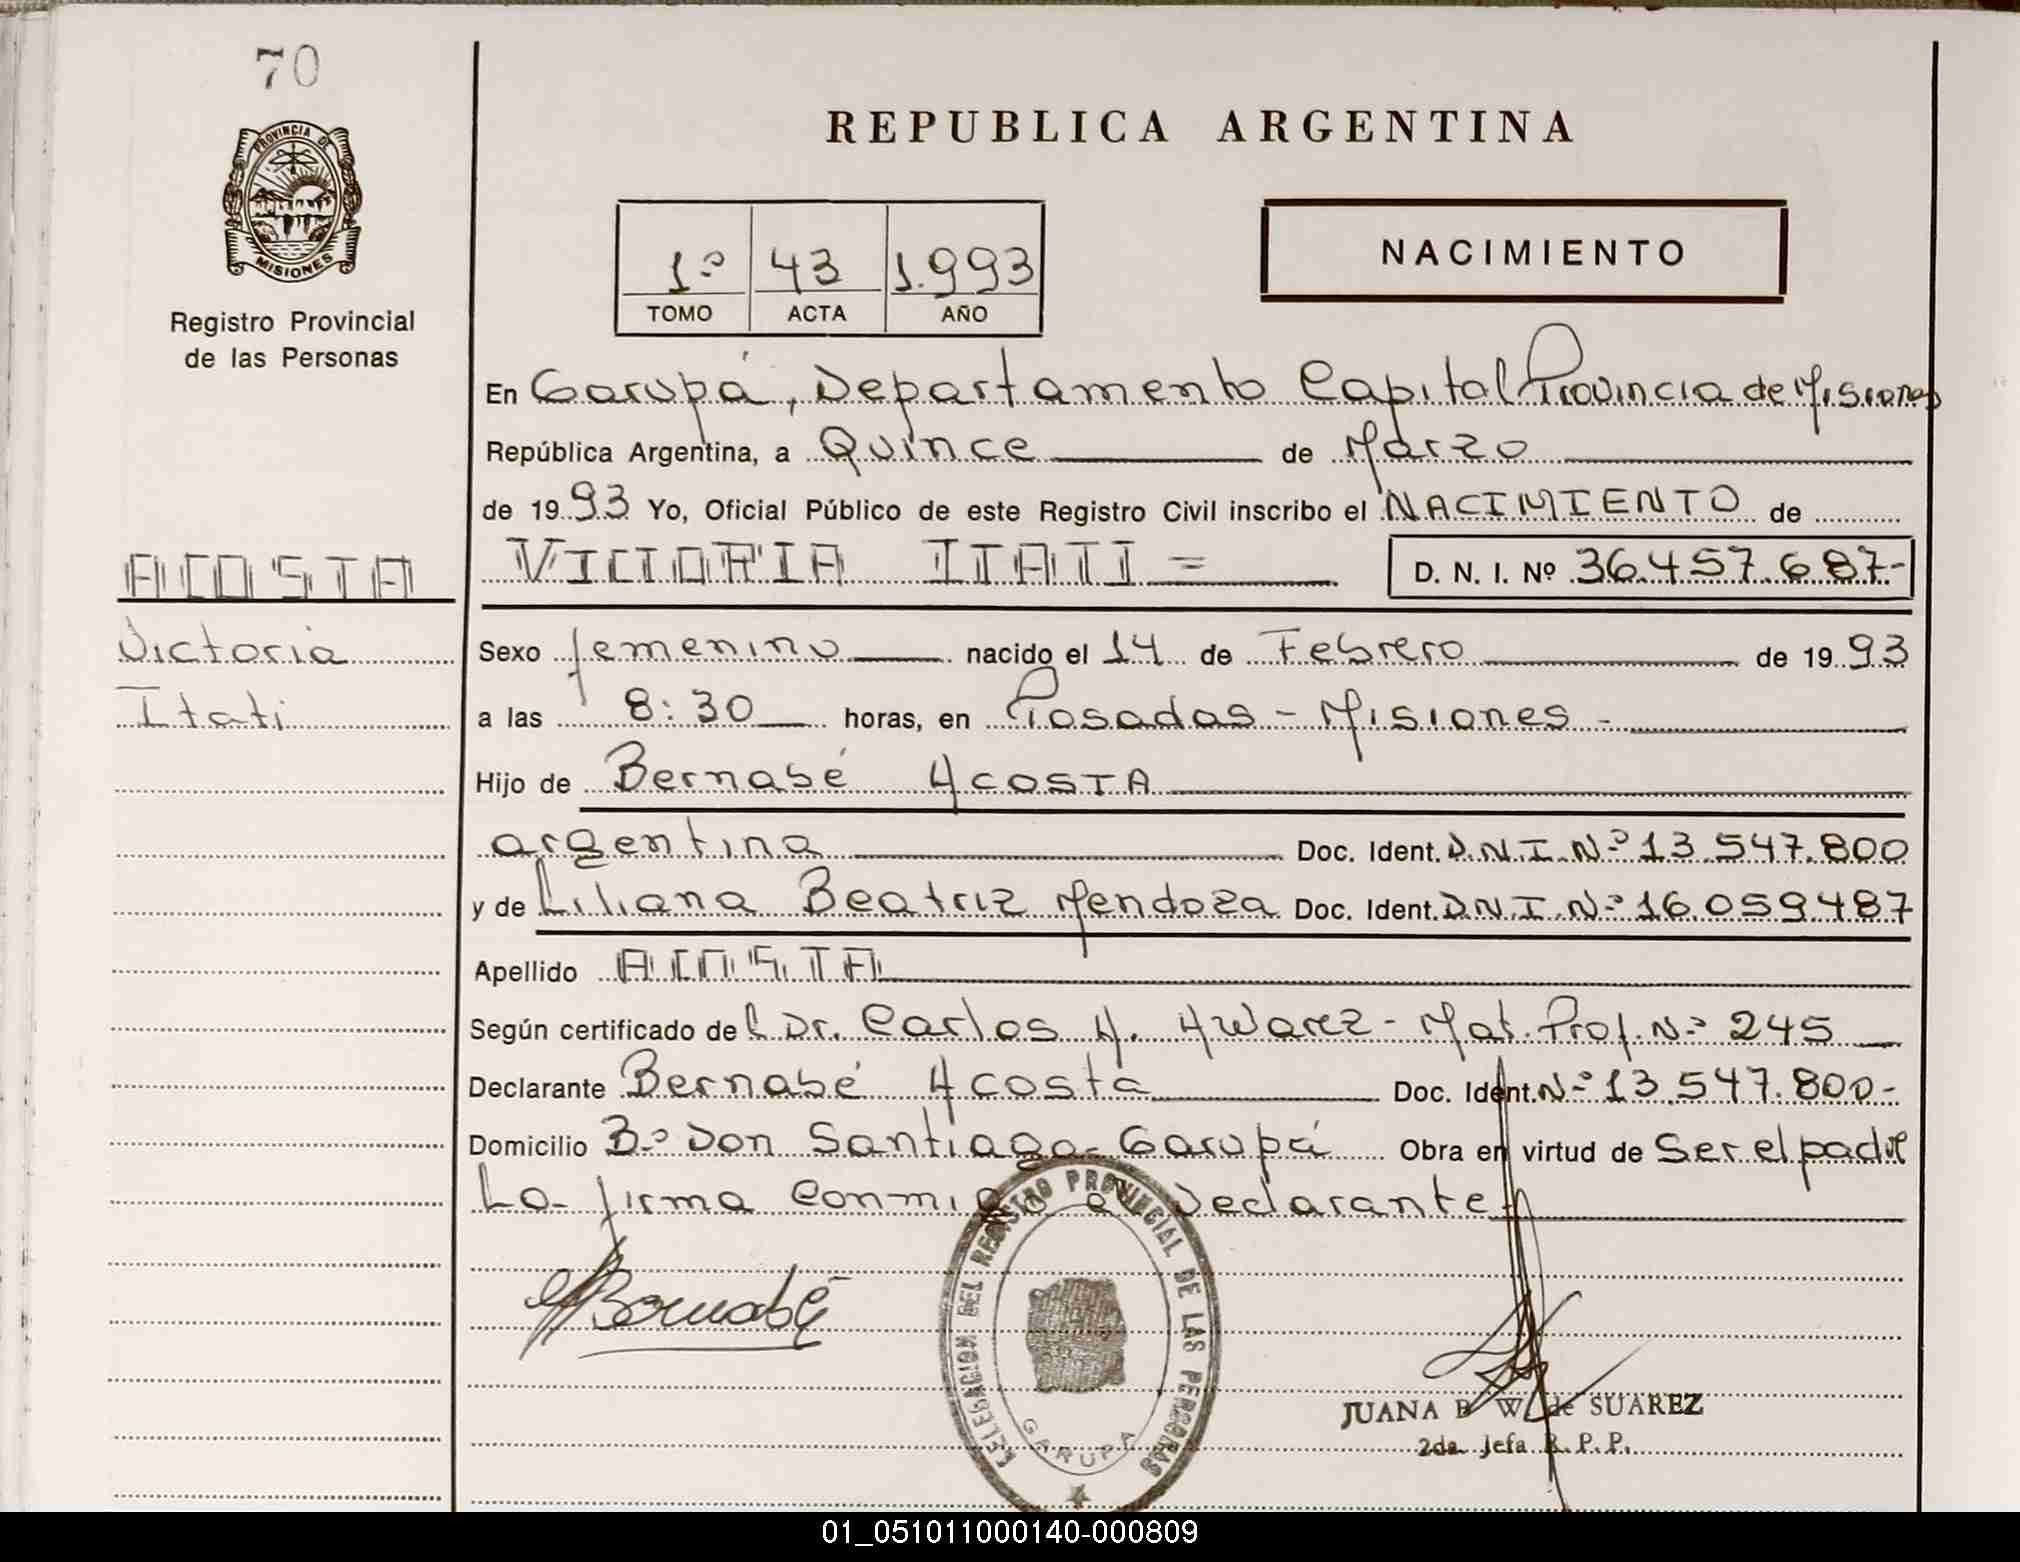 70
PROVINCIA DE
MISIONES
Registro Provincial
de las Personas
REPUBLICA ARGENTINA
1º 43 1.993
TOMO ACTA AÑO
NACIMIENTO
En Garupá, Departamento Capital Provincia de Misiones
República Argentina, a Quince de Marzo
de 1993 Yo, Oficial Público de este Registro Civil inscribo el NACIMIENTO de
ACOSTA
VICTORIA ITATI = D. N. I. Nº 36.457.687-
Victoria
Itati
Sexo femenino nacido el 14 de Febrero de 1993
a las 8:30 horas, en Posadas - Misiones -
Hijo de Bernabé ACOSTA
argentina Doc. Ident. D.N.I. Nº 13.547.800
y de Liliana Beatriz Mendoza Doc. Ident. D.N.I. Nº 16.059487
Apellido ACOSTA
Según certificado del Dr. Carlos A. Alvarez - Mat. Prof. Nº 245
Declarante Bernabé Acosta Doc. Ident. Nº 13.547.800-
Domicilio Bº Don Santiago - Garupá Obra en virtud de Ser el padre
Lo firma conmigo el Declarante
Bernabé
DELEGACION DEL REGISTRO PROVINCIAL DE LAS PERSONAS
GARUPA
JUANA B W. de SUAREZ
2da. Jefa R. P. P.
01_051011000140-000809